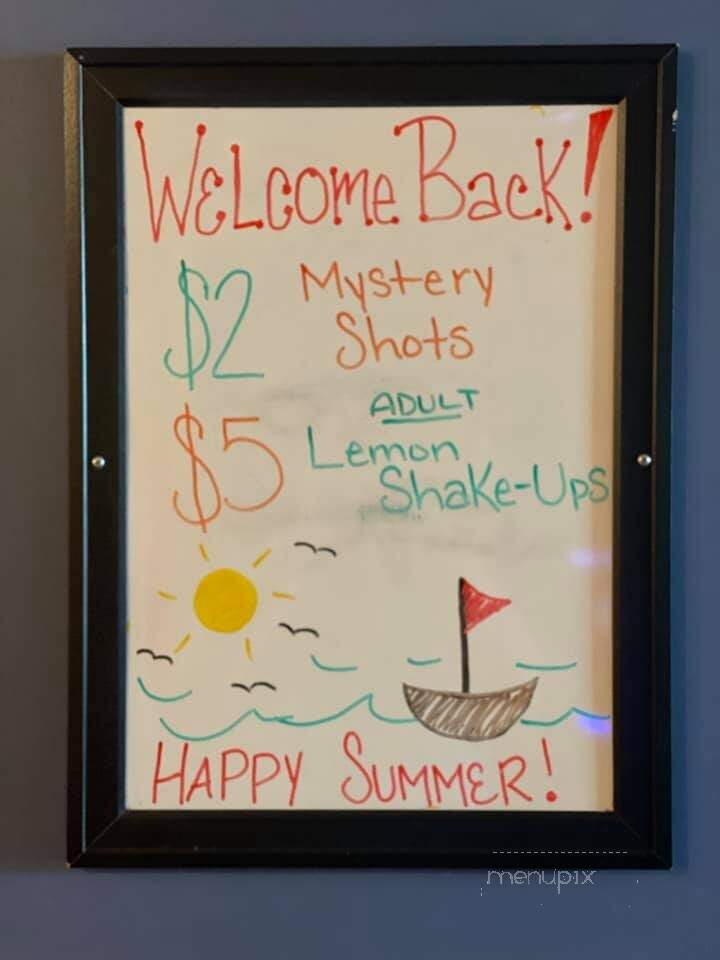 Welcome Back!
$2 Mystery
Shots
ADULT
$5 Lemon
Shake-Ups
HAPPY SUMMER!
menupix